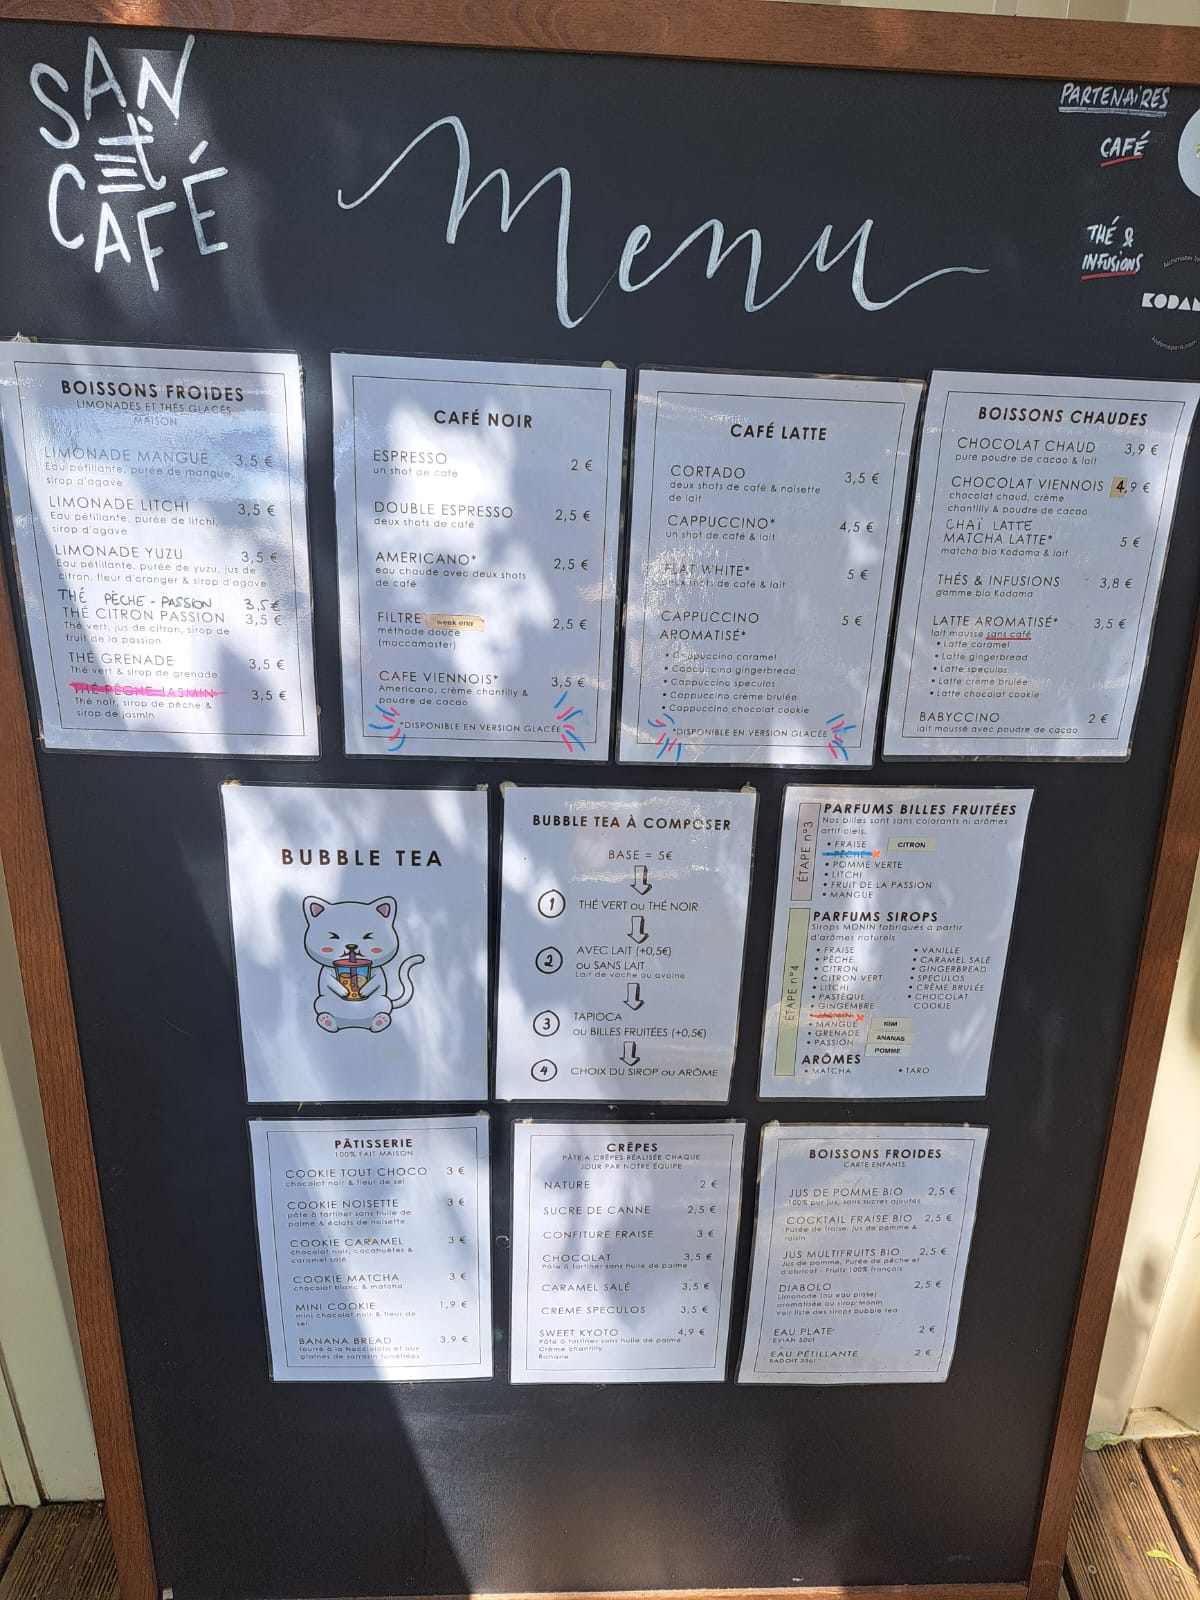 SAN
et
CAFÉ
Menu
PARTENAIRES
CAFÉ
THÉ &
INFUSIONS
BOISSONS FROIDES
LIMONADES ET THÉS GLACÉS
MAISON
LIMONADE MANGUE 3,5 €
Eau pétillante, purée de mangue,
sirop d'agave
LIMONADE LITCHI 3,5 €
Eau pétillante, purée de litchi,
sirop d'agave
LIMONADE YUZU 3,5 €
Eau pétillante, purée de yuzu, jus de
citron, fleur d'oranger & sirop d'agave
THÉ PÈCHE - PASSION 3,5 €
THÉ CITRON PASSION 3,5 €
Thé vert, jus de citron, sirop de
fruit de la passion
THÉ GRENADE 3,5 €
Thé vert & sirop de grenade
THÉ PÊCHE JASMIN 3,5 €
Thé noir, sirop de pêche &
sirop de jasmin
CAFÉ NOIR
ESPRESSO 2 €
un shot de café
DOUBLE ESPRESSO 2,5 €
deux shots de café
AMERICANO* 2,5 €
eau chaude avec deux shots
de café
FILTRE week end 2,5 €
méthode douce
(moccamaster)
CAFE VIENNOIS* 3,5 €
Americano, crème chantilly &
poudre de cacao
*DISPONIBLE EN VERSION GLACÉE
CAFÉ LATTE
CORTADO 3,5 €
deux shots de café & noisette
de lait
CAPPUCCINO* 4,5 €
un shot de café & lait
FLAT WHITE* 5 €
deux shots de café & lait
CAPPUCCINO 5 €
AROMATISÉ*
• Cappuccino caramel
• Cappuccino gingerbread
• Cappuccino speculos
• Cappuccino crème brulée
• Cappuccino chocolat cookie
*DISPONIBLE EN VERSION GLACÉE
BOISSONS CHAUDES
CHOCOLAT CHAUD 3,9 €
pure poudre de cacao & lait
CHOCOLAT VIENNOIS 4,9 €
chocolat chaud, crème
chantilly & poudre de cacao
CHAÏ LATTE
MATCHA LATTE* 5 €
matcha bio Kodama & lait
THÉS & INFUSIONS 3,8 €
gamme bio Kodama
LATTE AROMATISÉ* 3,5 €
lait moussé sans café
• Latte caramel
• Latte gingerbread
• Latte speculos
• Latte crème brulée
• Latte chocolat cookie
BABYCCINO 2 €
lait moussé avec poudre de cacao
BUBBLE TEA
BUBBLE TEA À COMPOSER
BASE = 5€
1 THÉ VERT ou THÉ NOIR
2 AVEC LAIT (+0,5€)
ou SANS LAIT
Lait de vache ou avoine
3 TAPIOCA
ou BILLES FRUITÉES (+0,5€)
4 CHOIX DU SIROP ou ARÔME
ÉTAPE n°3
PARFUMS BILLES FRUITÉES
Nos billes sont sans colorants ni arômes
artificiels.
• FRAISE CITRON
• PÊCHE
• POMME VERTE
• LITCHI
• FRUIT DE LA PASSION
• MANGUE
ÉTAPE n°4
PARFUMS SIROPS
Sirops MONIN fabriqués à partir
d'arômes naturels
• FRAISE
• PÊCHE
• CITRON
• CITRON VERT
• LITCHI
• PASTÈQUE
• GINGEMBRE
• JASMIN
• MANGUE
• GRENADE
• PASSION
• VANILLE
• CARAMEL SALÉ
• GINGERBREAD
• SPECULOS
• CRÈME BRULÉE
• CHOCOLAT
COOKIE
KIWI
ANANAS
POMME
ARÔMES
• MATCHA • TARO
PÂTISSERIE
100% FAIT MAISON
COOKIE TOUT CHOCO 3 €
chocolat noir & fleur de sel
COOKIE NOISETTE 3 €
pâte à tartiner sans huile de
palme & éclats de noisette
COOKIE CARAMEL 3 €
chocolat noir, cacahuètes &
caramel salé
COOKIE MATCHA 3 €
chocolat blanc & matcha
MINI COOKIE 1,9 €
mini chocolat noir & fleur de
sel
BANANA BREAD 3,9 €
fourré à la Nocciolata et aux
graines de sarrasin torréfiées
CRÊPES
PÂTE A CRÊPES RÉALISÉE CHAQUE
JOUR PAR NOTRE ÉQUIPE
NATURE 2 €
SUCRE DE CANNE 2,5 €
CONFITURE FRAISE 3 €
CHOCOLAT 3,5 €
Pâte à tartiner sans huile de palme
CARAMEL SALÉ 3,5 €
CREME SPECULOS 3,5 €
SWEET KYOTO 4,9 €
Pâte à tartiner sans huile de palme
Crème chantilly
Banane
BOISSONS FROIDES
CARTE ENFANTS
JUS DE POMME BIO 2,5 €
100% pur jus, sans sucres ajoutés
COCKTAIL FRAISE BIO 2,5 €
Purée de fraise, jus de pomme &
raisin
JUS MULTIFRUITS BIO 2,5 €
Jus de pomme, Purée de pêche et
d'abricot - Fruits 100% français
DIABOLO 2,5 €
Limonade (ou eau plate)
aromatisée au sirop Monin
Voir liste des sirops bubble tea
EAU PLATE 2 €
EVIAN 50cl
EAU PÉTILLANTE 2 €
BADOIT 33cl